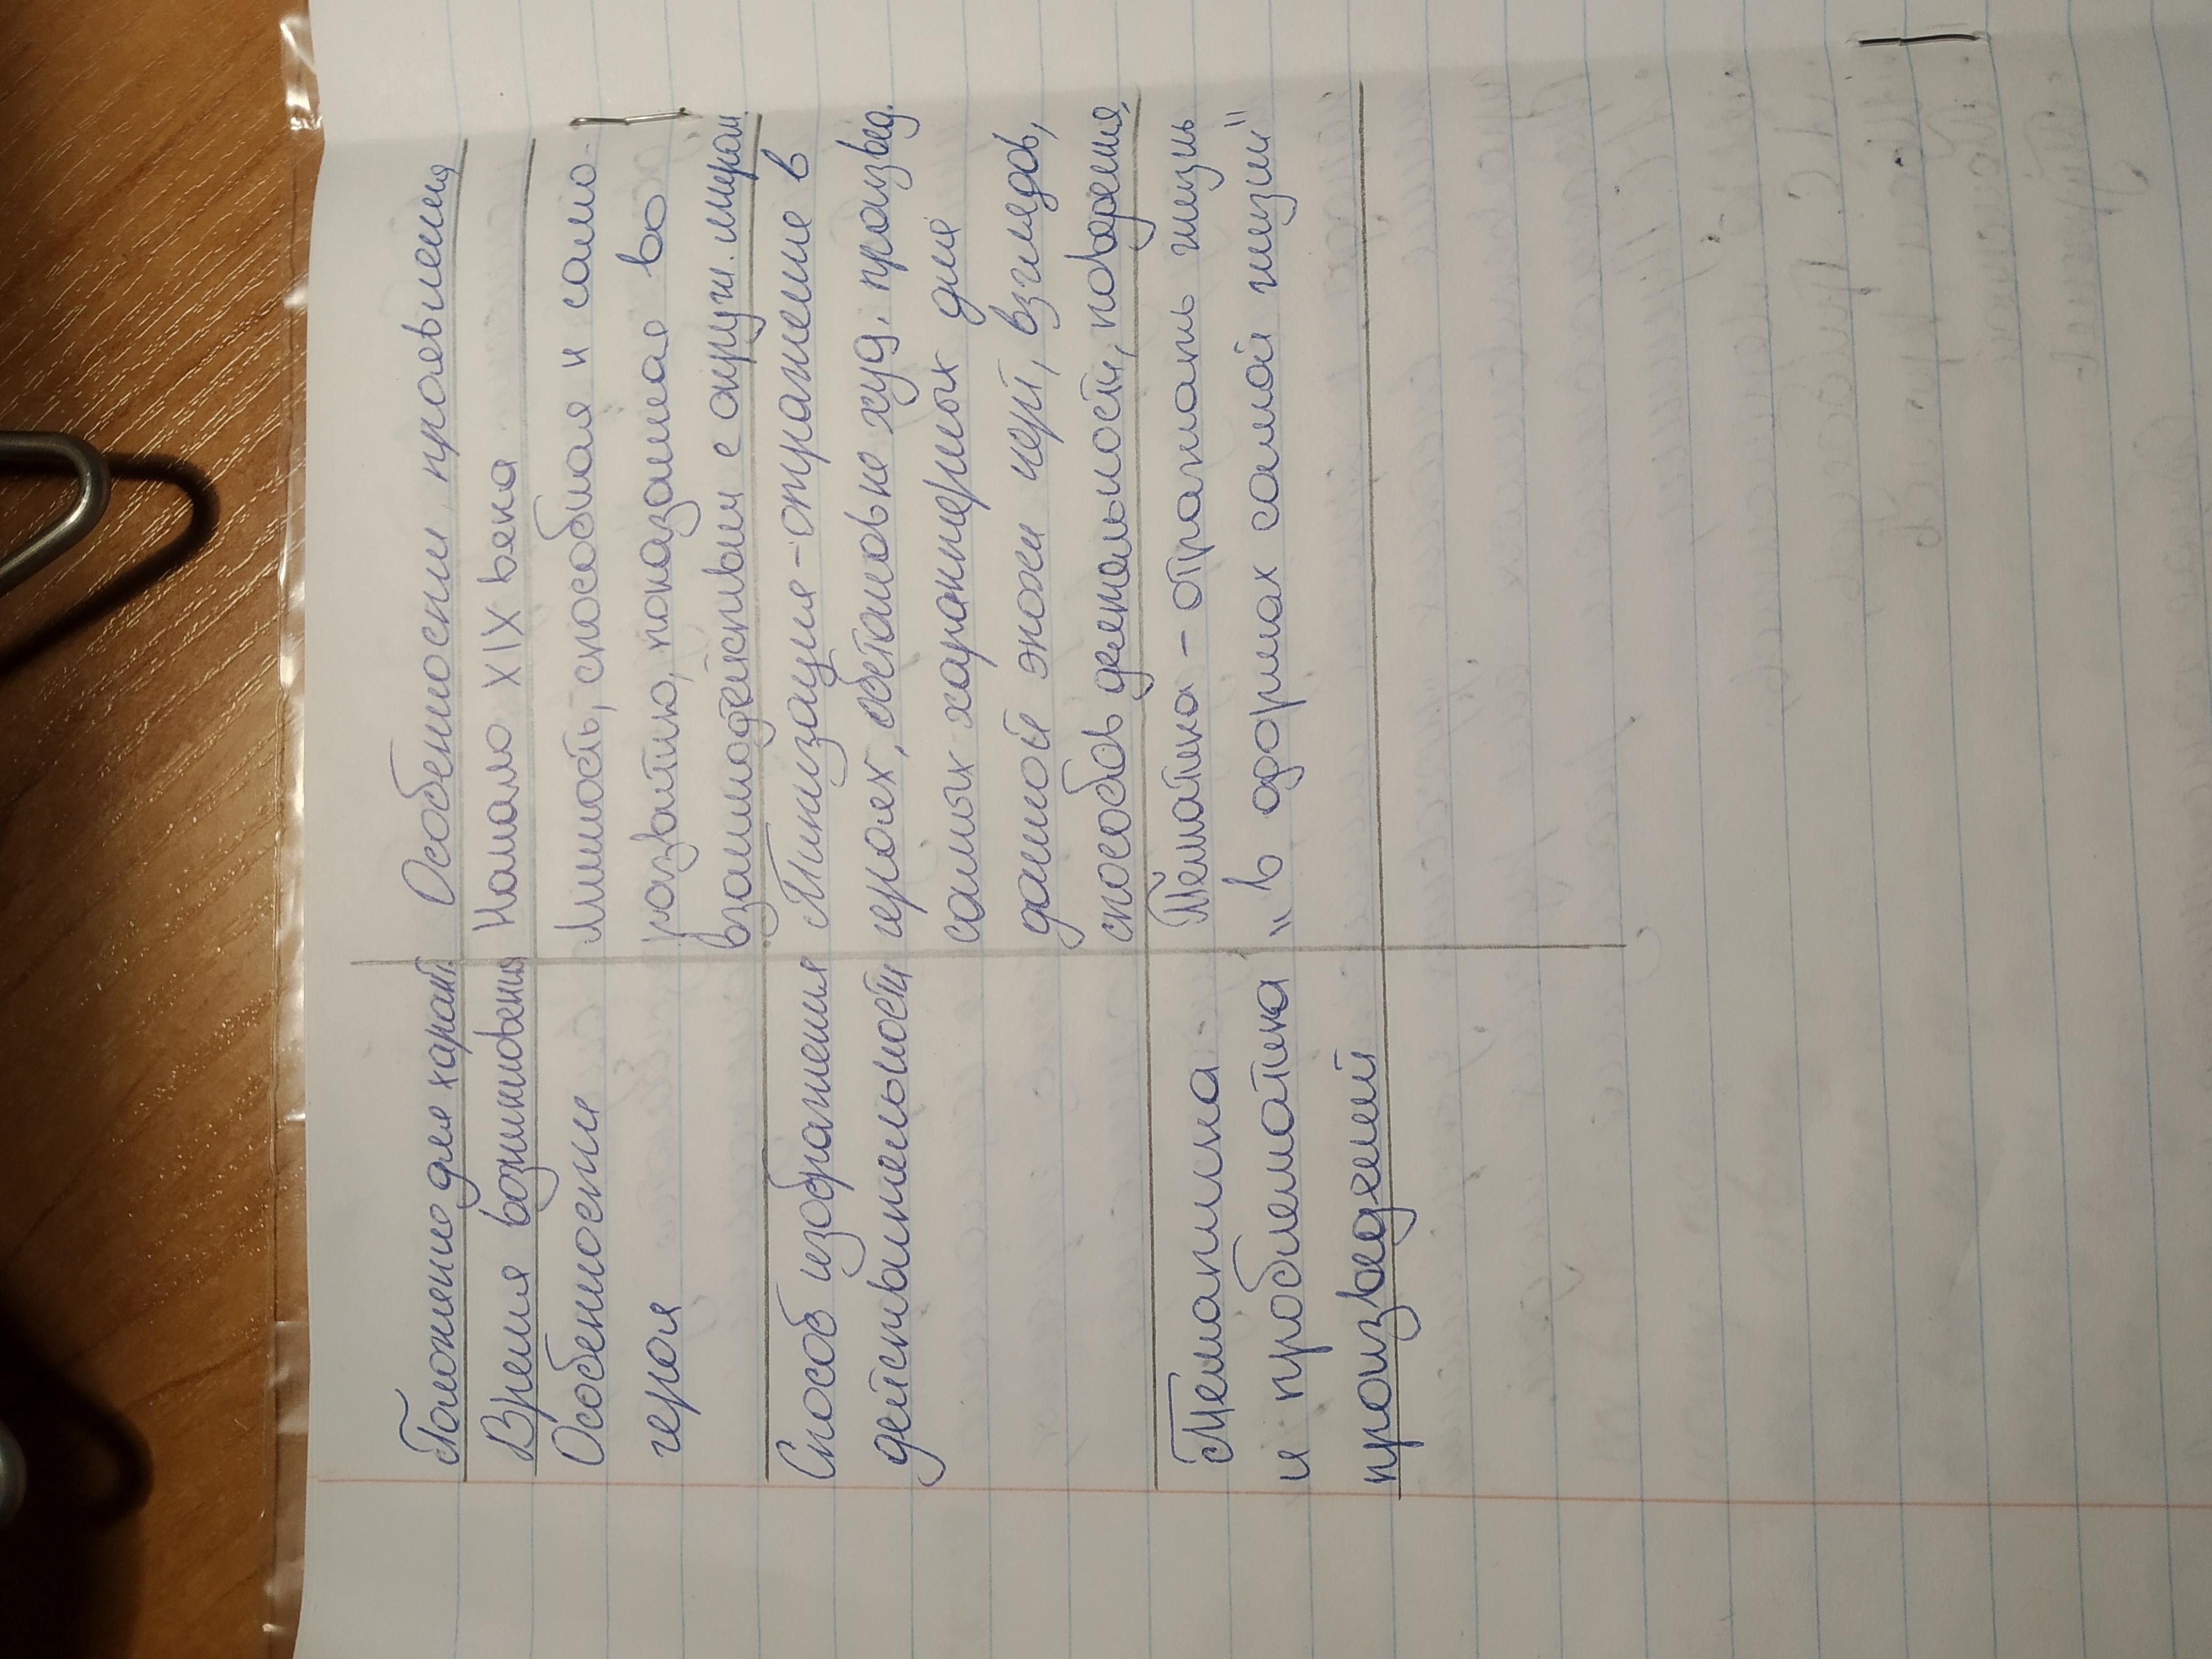 Положение для характ. Особенности проявления
Время возникновения Начало XIX века
Особенности Личность, способная к само-
героя развитию, показанная во
взаимодействии с окруж. миром
Способ изображения Типизация - отражение в
действительности героях, обстановке худ. произвед.
самых характерных для
данной эпохи черт, взглядов,
способов деятельности, поведения
Тематика Тематика - отражать жизнь
и проблематика „в формах самой жизни"
произведений